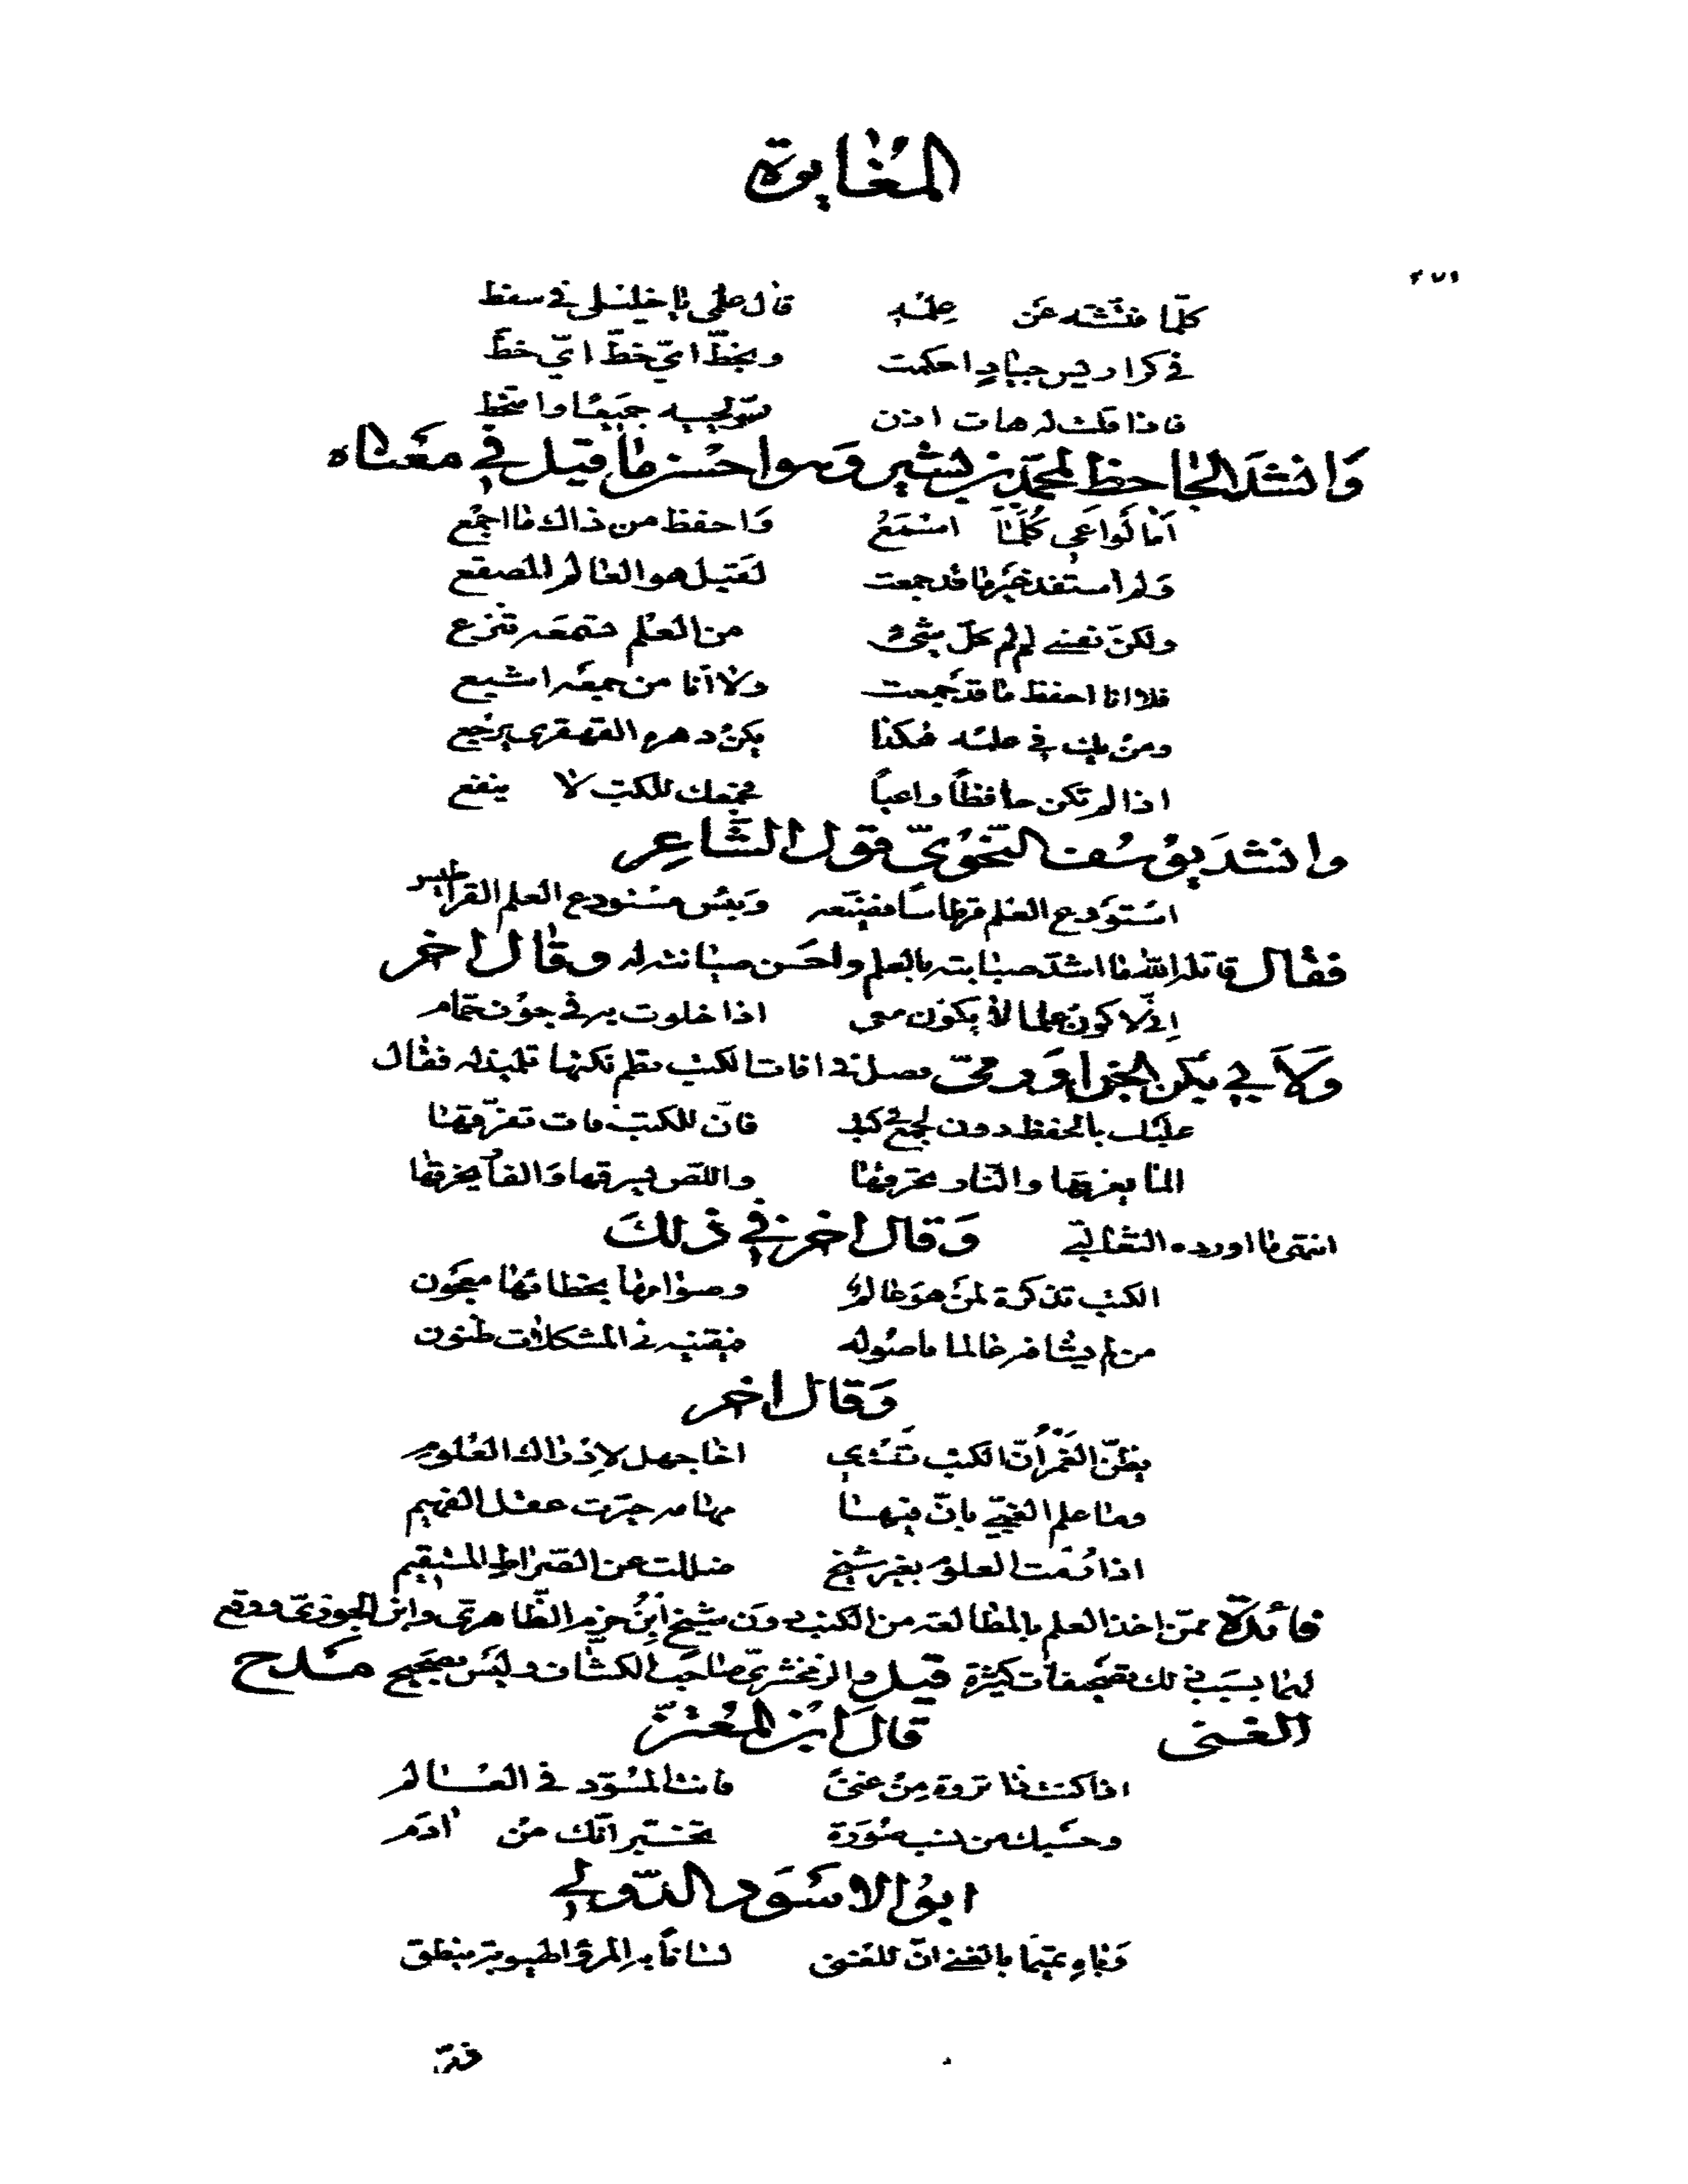 المغايرة
كلّما فتشته عن علمه قال علمي يا خليلي في سفط
في كراريس جياد احكمت وبخطّ ايّ خطّ ايّ خط
فاذا قلت له هات اذن لحييه جميعا وامتخط
وانشد الجاحظ لمحمد بن بشير وهو احسن ما قيل في معناه
اما لو اعي كلما اسمع واحفظ من ذاك ما اجمع
ولم استفد غير ما قد جمعت لقيل هو العالم المصقع
ولكنّ نفسي كلّ شيء من العلم تنزع
فلا انا احفظ ما قد جمعت ولا انا من جمعه اشبع
ومن يك في علمه هكذا يكن دهره القهقرى يرجع
اذا لم تكن حافظاً واعياً فجمعك للكتب لا ينفع
وانشد يونس النحويّ قول الشّاعر
استودع العلم قرطاسا فضيّعه وبئس مستودع العلم القراطيس
فقال قاتله الله ما اشدّ صبابته بالعلم واحسن صيانته له وقال اخر
اِنّي لاكون علما لا يكون معي اذا خلوت به في جوف حمّام
ولابي بكر فصل في افات الكتب نظم تلميذله فقال
عليك بالحفظ دون الجمع في كتب فانّ للكتب افات تفرّقها
الما يغرقها والنّار تحرقها واللصّ يسرقها والفأر يخرقها
انتهى ما اورده الثعالبي وقال اخر في ذلك
الكتب تذكرة لمن هو عالم وصوابها بخطائها معجون
من لم يشافه عالما باصوله فيقينه في المشكلات ظنون
وقال اخر
يظنّ الغمر انّ الكتب تهدي اخا جهل لادراك العلوم
وما علم الغبيّ بانّ فيها حيّرت عقل الفهيم
اذا رمت العلوم بغير شيخ ضللت عن الصّراط المستقيم
فائدة ممّن اخذ العلم بالمطالعة من الكتب دون شيخ ابن حزم الظّاهريّ وابن الجوزيّ ووقع
لهما بسبب ذلك تصحيفات كثيرة قيل والزمخشريّ صاحب الكشّاف وليس بصحيح مدح
الغنى قال ابن المعتزّ
اذا كنت ذا ثروة من غنىً فانت المسوّد في العالم
وحسبك من نسب صورة تخبّر انّك من ادم
ابو الاسود الدّولي
وباهِ تميما بالغنى انّ للغنى لسانا به المرؤ الهيوبة ينطق